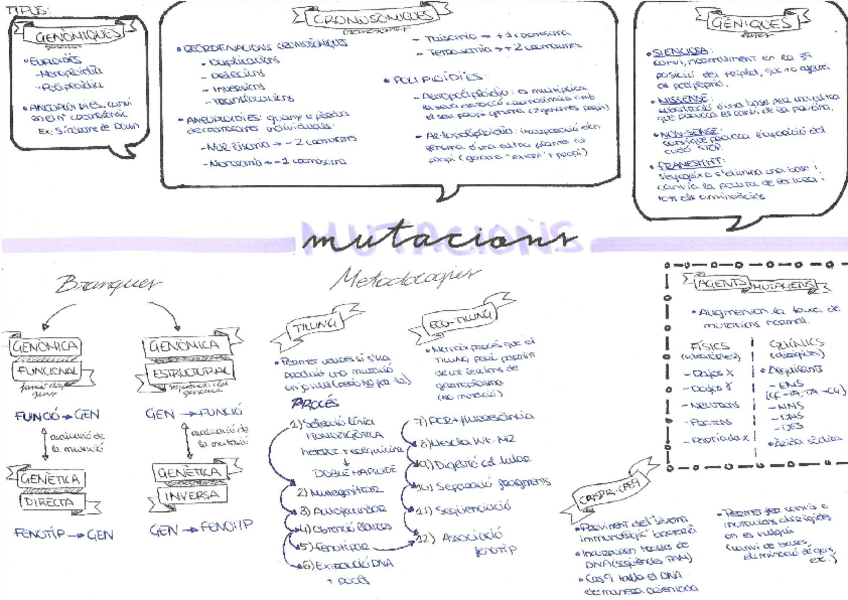 TIPUS:
GENÒMIQUES
• EUPLOÏDIES
- Monoploïdia
- Poliploïdia
• ANEUPLOÏDIES, canvi
en el nº cromosòmic
Ex: Síndrome de Down
CROMOSÒMIQUES
• REORDENACIONS CROMOSÒMIQUES
- Duplicacions
- Delecions
- Inversions
- Translocacions
• ANEUPLOÏDIES: guany o pèrdua
de cromosomes individuals
- Nul·lisomia → -2 cromosomes
- Monosomia → -1 cromosoma
- Trisomia → +1 cromosoma
- Tetrasomia → +2 cromosomes
• POLIPLOÏDIES:
- Autopoliploïdia: es multiplica
la seva dotació cromosòmica amb
el seu propi genoma (2 genomes propis)
- Al·lopoliploïdia: incorporació d'un
genoma d'una altra planta al
propi (genoma "extern" + propi)
GÈNIQUES
• SILENCIOSA:
canvi, normalment en la 3ª
posició del triplet, que no afecta
al polipèptid.
• MISSENSE:
substitució d'una base per una altra
que provoca el canvi de la proteïna.
• NON-SENSE:
canvi que provoca l'aparició del
codó STOP.
• FRAMESHIFT:
s'afegeix o s'elimina una base i
canvia la pauta de lectura i
tots els aminoàcids.
MUTACIONS
mutacions
Branques
GENÒMICA
FUNCIONAL
FUNCIÓ → GEN
avaluació de
la mutació
GENÈTICA
DIRECTA
FENOTIP → GEN
GENÒMICA
ESTRUCTURAL
GEN → FUNCIÓ
avaluació de
la mutació
GENÈTICA
INVERSA
GEN → FENOTIP
Metodologies
TILLING
• Permet veure si s'ha
produït una mutació
PROCÉS
1) Selecció línia
HOMOZIGOTA
↓
DOBLE HAPLOIDE
2) Mutagenitzar
3) Autofecundar
4) Obtenció llavors
5) Fenotipar
6) Extracció DNA
+ pools
ECO-TILLING
• Mateix procés que el
TILLING, però partint
de col·leccions de
germoplasma
(no mutació)
7) PCR + fluorescència
8) Mescla Wt-M2
9) Digestió cel lular
10) Separació fragments
11) Seqüenciació
12) Associació
fenotip
AGENTS MUTÀGENS
• Augmenten la taxa de
mutacions normal.
FÍSICS
(radiacions)
- Rajos X
- Rajos γ
- Neutrons
- Protons
- Partícules α
QUÍMICS
• Alquilants
- EMS
- MMS
- DES
• Àzida sòdica
CRISPR-CAS9
• Provinent del "sistema
immunològic" bacterià
• Incorporen trossos de
DNA (seqüències PAM)
• Cas9 talla el DNA
de manera dirigida
• Permet fer canvis o
mutacions dirigides
on es vulgui
(canvi de bases,
eliminació de gens,
etc.)